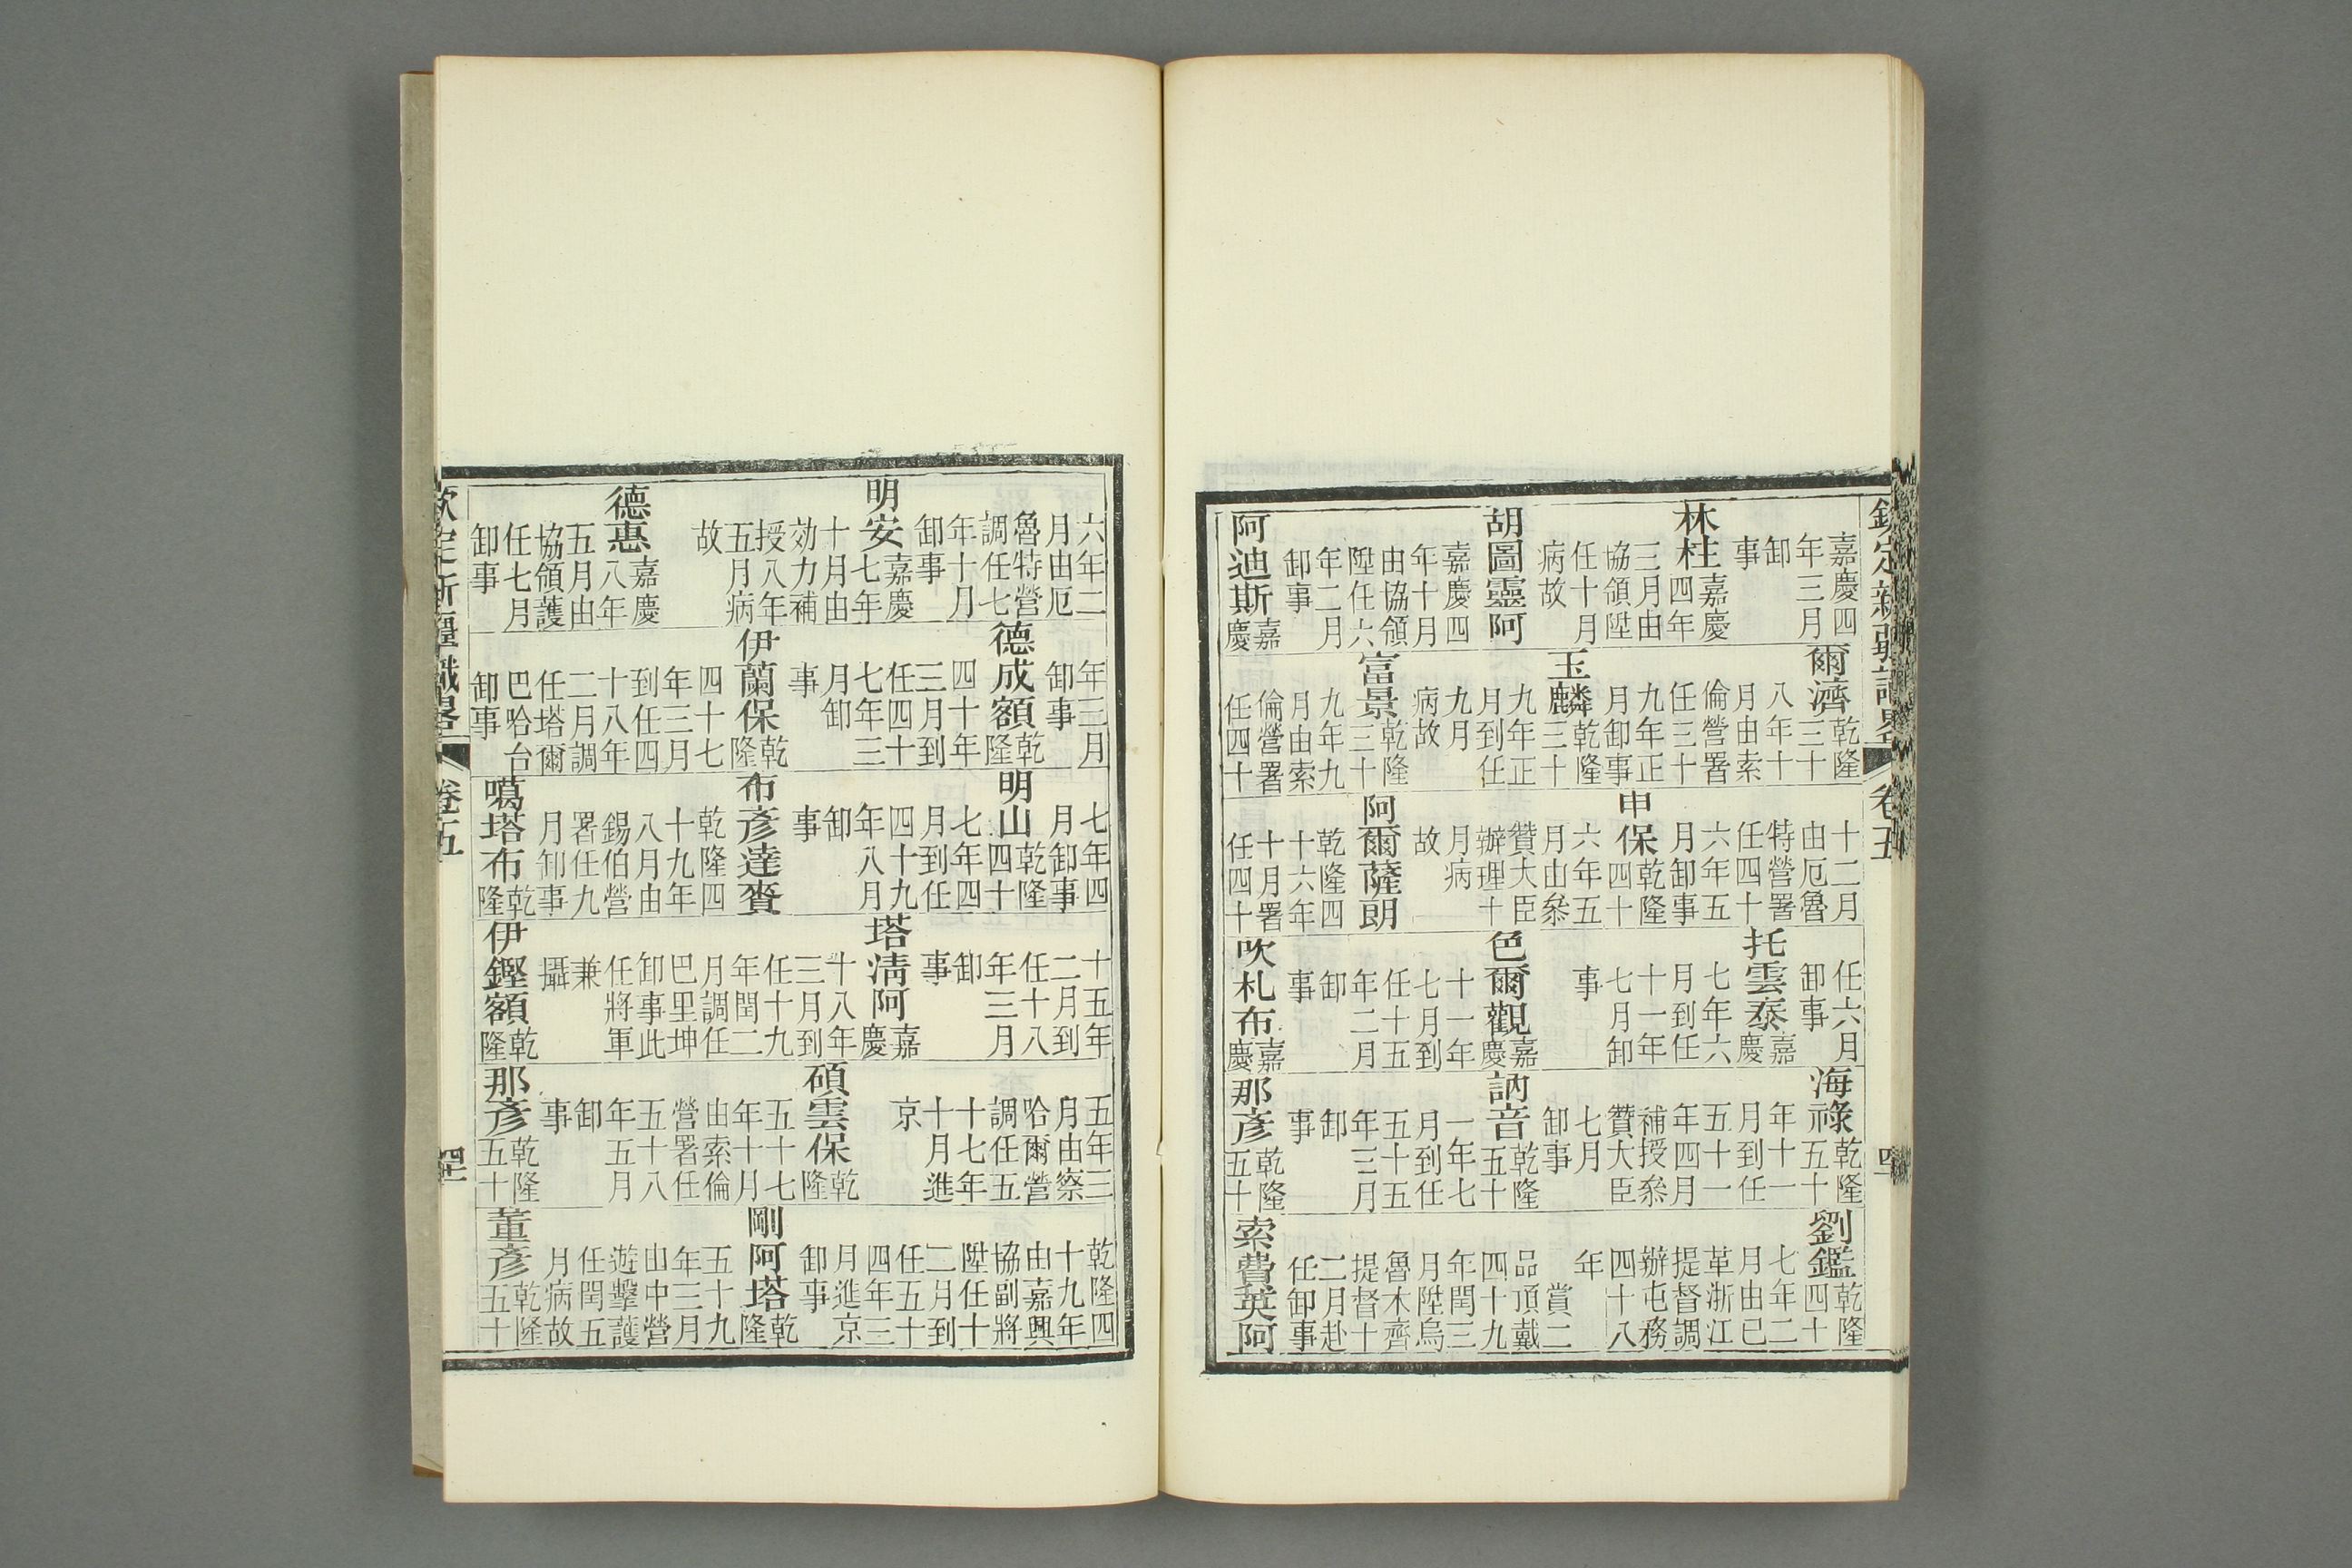 欽定新疆識畧 卷五
嘉慶四
年三月
卸
事
林柱嘉慶四年
三月由
協領陞
任十月
病故
胡圖靈阿
嘉慶四
年十月
由協領
陞任六
年二月
卸事
阿迪斯嘉慶
爾濟乾隆三十
八年十
月由索
倫營署
任三十
九年正
月卸事
玉麟乾隆三十
九年正
月到任
九月
病故
富景乾隆三十
九年九
月由索
倫營署
任四十
十二月
由厄魯
特營署
任四十
六年五
月卸事
申保乾隆四十
六年五
月由叅
贊大臣
辦理十
月病
故
阿爾薩朗
乾隆四
十六年
十月署
任四十
任六月
卸事
托雲泰嘉慶
七年六
月到任
十一年
七月卸
事
色爾觀嘉慶
十一年
七月到
任十五
年二月
卸
事
吹札布嘉慶
海祿乾隆五十
年十一
月到任
五十一
年四月
補授叅
贊大臣
七月
卸事
訥音乾隆五十
一年七
月到任
五十五
年三月
卸
事
那彥乾隆五十
劉鑑乾隆四十
七年二
月由已
革浙江
提督調
辦屯務
四十八
年
賞二
品頂戴
四十九
年閏三
月陞烏
魯木齊
提督十
二月赴
任卸事
索費英阿
六年二
月由厄
魯特營
調任七
年十月
卸事
明安嘉慶七年
十月由
効力補
授八年
五月病
故
德惠嘉慶八年
五月由
協領護
任七月
卸事
年三月
卸事
德成額乾隆
四十年
三月到
任四十
七年三
月卸
事
伊蘭保乾隆
四十七
年三月
到任四
十八年
二月調
任塔爾
巴哈台
卸事
七年四
月卸事
明山乾隆四十
七年四
月到任
四十九
年八月
卸
事
布彥達賚
乾隆四
十九年
八月由
錫伯營
署任九
月卸事
噶塔布乾隆
十五年
二月到
任十八
年三月
卸
事
塔淸阿嘉慶
十八年
三月到
任十九
年閏二
月調任
巴里坤
卸事此
任將軍
兼
攝
伊鏗額乾隆
五年三
月由察
哈爾營
調任五
十七年
十月進
京
碩雲保乾隆
五十七
年十月
由索倫
營署任
五十八
年五月
卸
事
那彥乾隆五十
乾隆四
十九年
由嘉興
協副將
陞任十
二月到
任五十
四年三
月進京
卸事
剛阿塔乾隆
五十九
年三月
由中營
遊擊護
任閏五
月病故
董彥乾隆五十
欽定新疆識畧 卷五